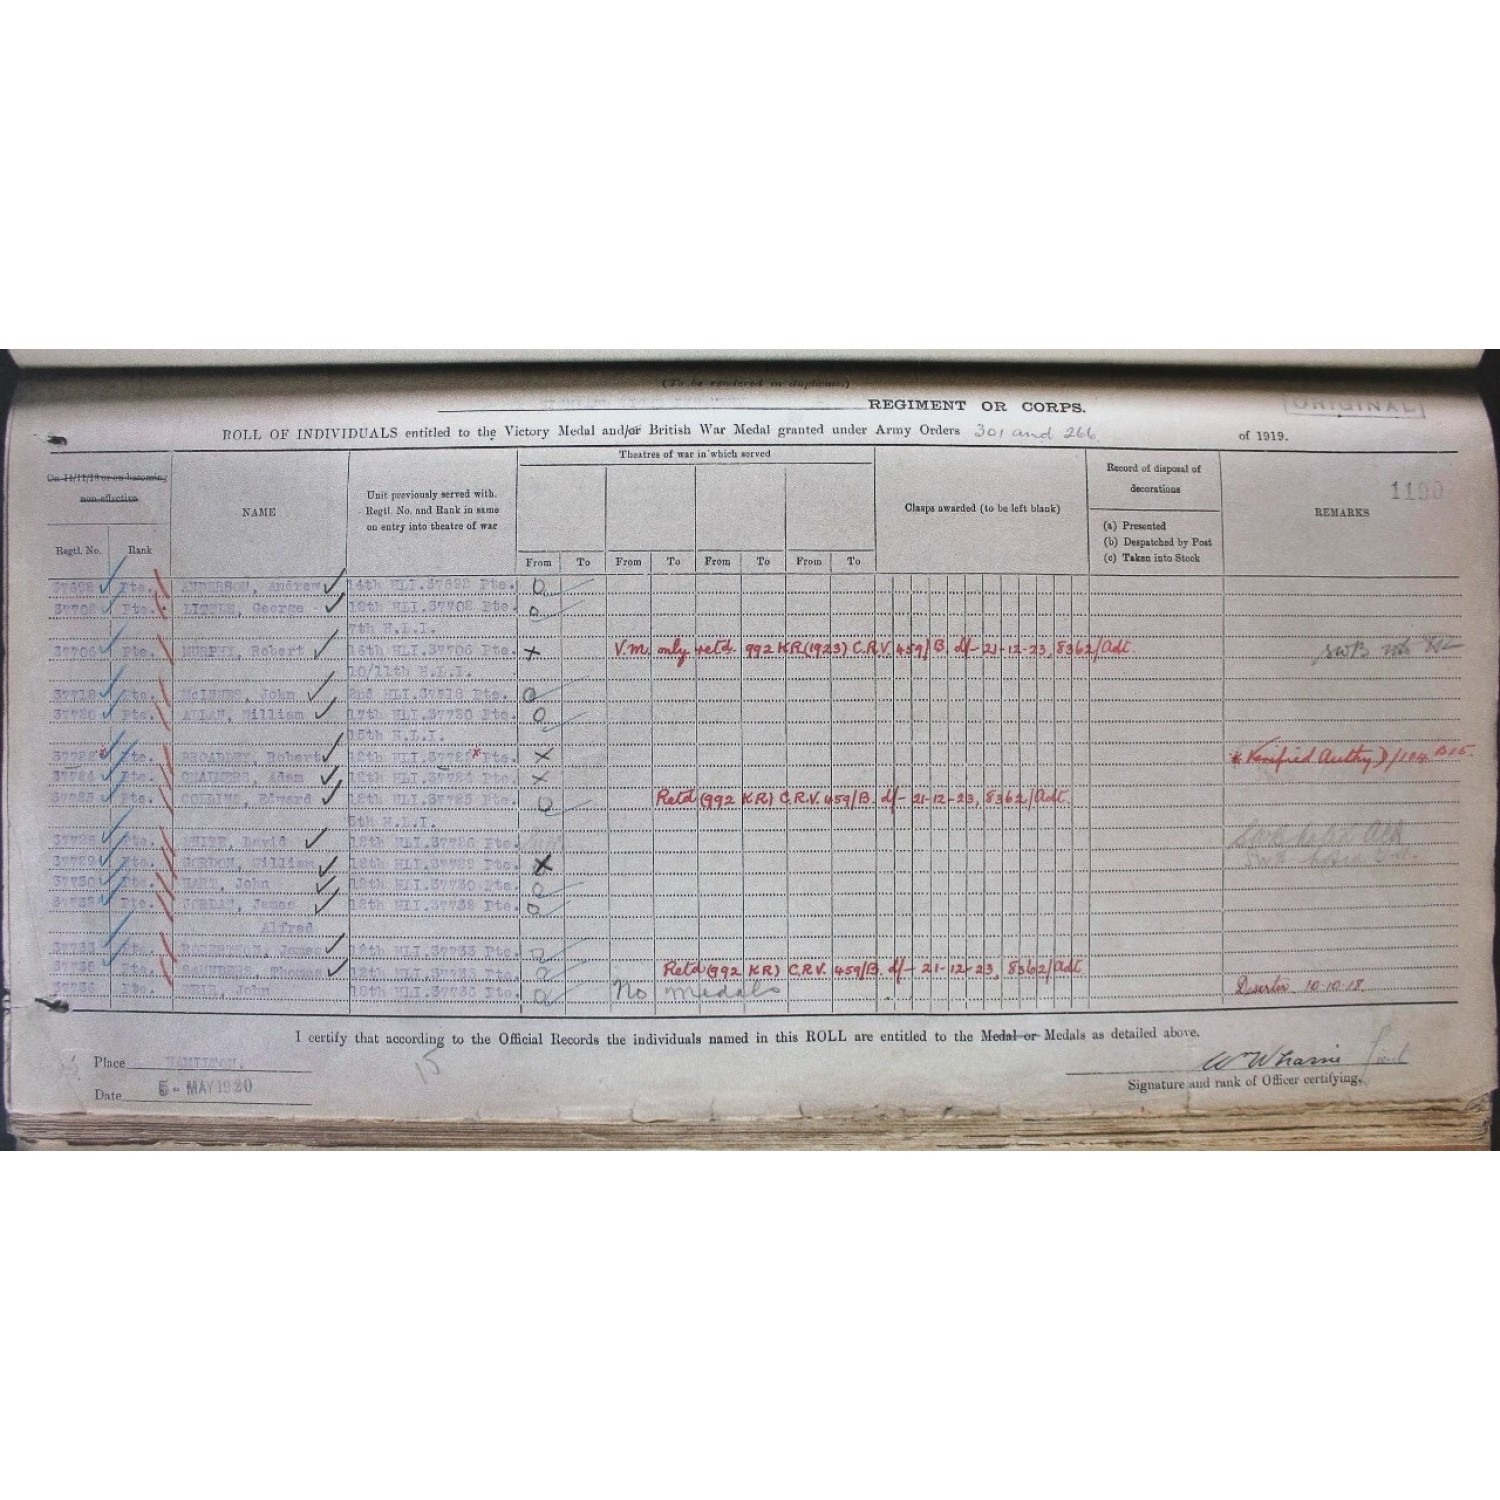 (To be rendered in duplicate.)
REGIMENT OR CORPS.
ORIGINAL
ROLL OF INDIVIDUALS entitled to the Victory Medal and/or British War Medal granted under Army Orders 301 and 266 of 1919.
On 11/11/18 or on becoming non-effective
Regtl. No.
Rank
NAME
Unit previously served with. Regtl. No. and Rank in same on entry into theatre of war
Theatres of war in which served
From To From To From To From To
Clasps awarded (to be left blank)
Record of disposal of decorations
(a) Presented
(b) Despatched by Post
(c) Taken into Stock
1190
REMARKS
37692 Pte. ANDERSON, Andrew 14th HLI.37692 Pte. O
37702 Pte. LITTLE, George 18th HLI.37702 Pte. O
7th H.L.I.
37706 Pte. MURPHY, Robert 16th HLI.37706 Pte. X V.M. only retd. 992 KR (1923) C.R.V. 459/B. d/- 21-12-23, 8362/Adt. SWB
10/11th H.L.I.
37718 Pte. McINNES, John 2nd HLI.37718 Pte. O
37720 Pte. ALLAN, William 17th HLI.37720 Pte. O
15th H.L.I.
Pte. BROADLEY, Robert 12th HLI. Pte. X * Verified Authy D/104 B15
37724 Pte. CHALMERS, Adam 12th HLI.37724 Pte. X
37725 Pte. COLLINS, Edward 12th HLI.37725 Pte. O Retd (992 KR) C.R.V. 459/B. d/- 21-12-23, 8362/Adt.
5th H.L.I.
37726 Pte. WHITE, David 12th HLI.37726 Pte.
37729 Pte. GORDON, William 12th HLI.37729 Pte. X
37730 Pte. HART, John 12th HLI.37730 Pte. O
37732 Pte. JORDAN, James 12th HLI.37732 Pte. O
Alfred
37733 Pte. ROBERTSON, James 12th HLI.37733 Pte. O
Pte. SAUNDERS, Thomas 12th HLI. Pte. O Retd (992 KR) C.R.V. 459/B. d/- 21-12-23, 8362/Adt
37736 Pte. WEIR, John 12th HLI.37736 Pte. O No medals Deserter 10-10-18.
I certify that according to the Official Records the individuals named in this ROLL are entitled to the Medal or Medals as detailed above.
15
Place HAMILTON.
Date 5- MAY 1920
Wm Wharrie Lieut
Signature and rank of Officer certifying.